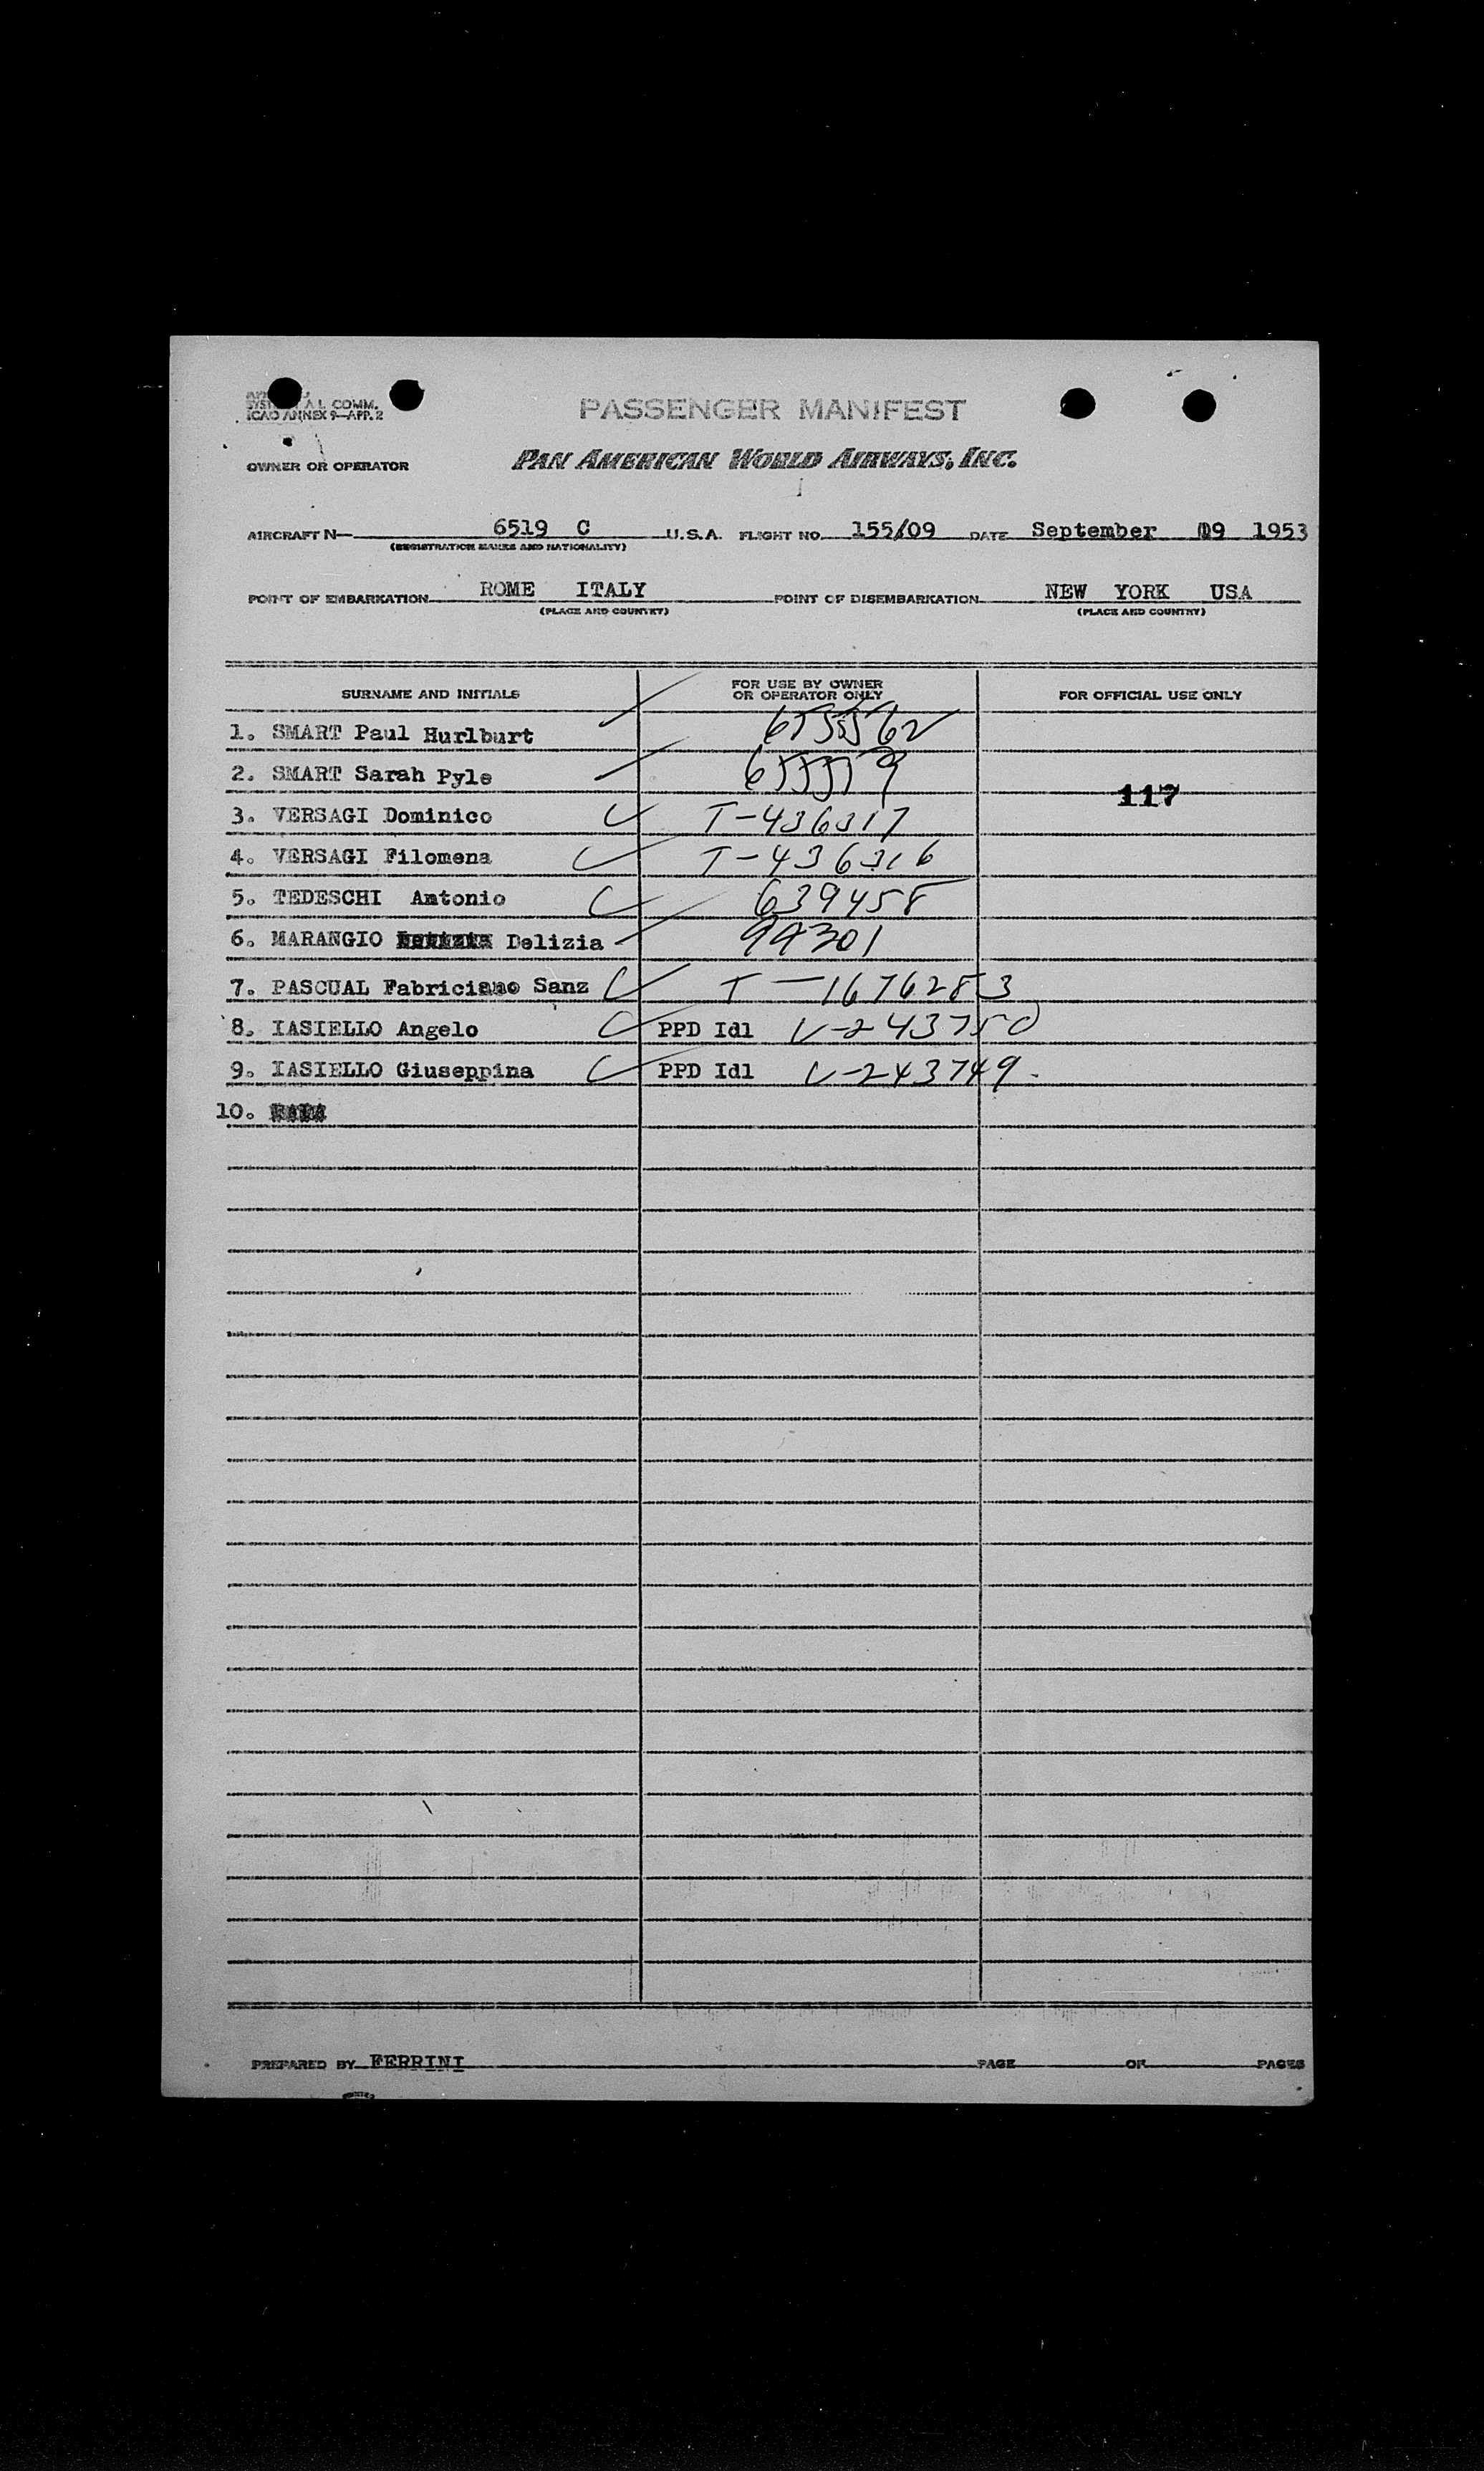 SYST A.L. COMM.
ICAO ANNEX 9—APP. 2
PASSENGER MANIFEST
OWNER OR OPERATOR PAN AMERICAN WORLD AIRWAYS, INC.
AIRCRAFT N— 6519 C U.S.A. FLIGHT NO. 155/09 DATE September 09 1953
(REGISTRATION MARKS AND NATIONALITY)
POINT OF EMBARKATION ROME ITALY POINT OF DISEMBARKATION NEW YORK USA
(PLACE AND COUNTRY) (PLACE AND COUNTRY)
SURNAME AND INITIALS FOR USE BY OWNER OR OPERATOR ONLY FOR OFFICIAL USE ONLY
1. SMART Paul Hurlburt 655562
2. SMART Sarah Pyle 655559
117
3. VERSAGI Dominico T-436317
4. VERSAGI Filomena T-436316
5. TEDESCHI Antonio 639458
6. MARANGIO Delizia 99301
7. PASCUAL Fabriciano Sanz T-1676283
8. IASIELLO Angelo PPD Idl V-243750
9. IASIELLO Giuseppina PPD Idl V-243749
10.
PREPARED BY FERRINI PAGE OF PAGES